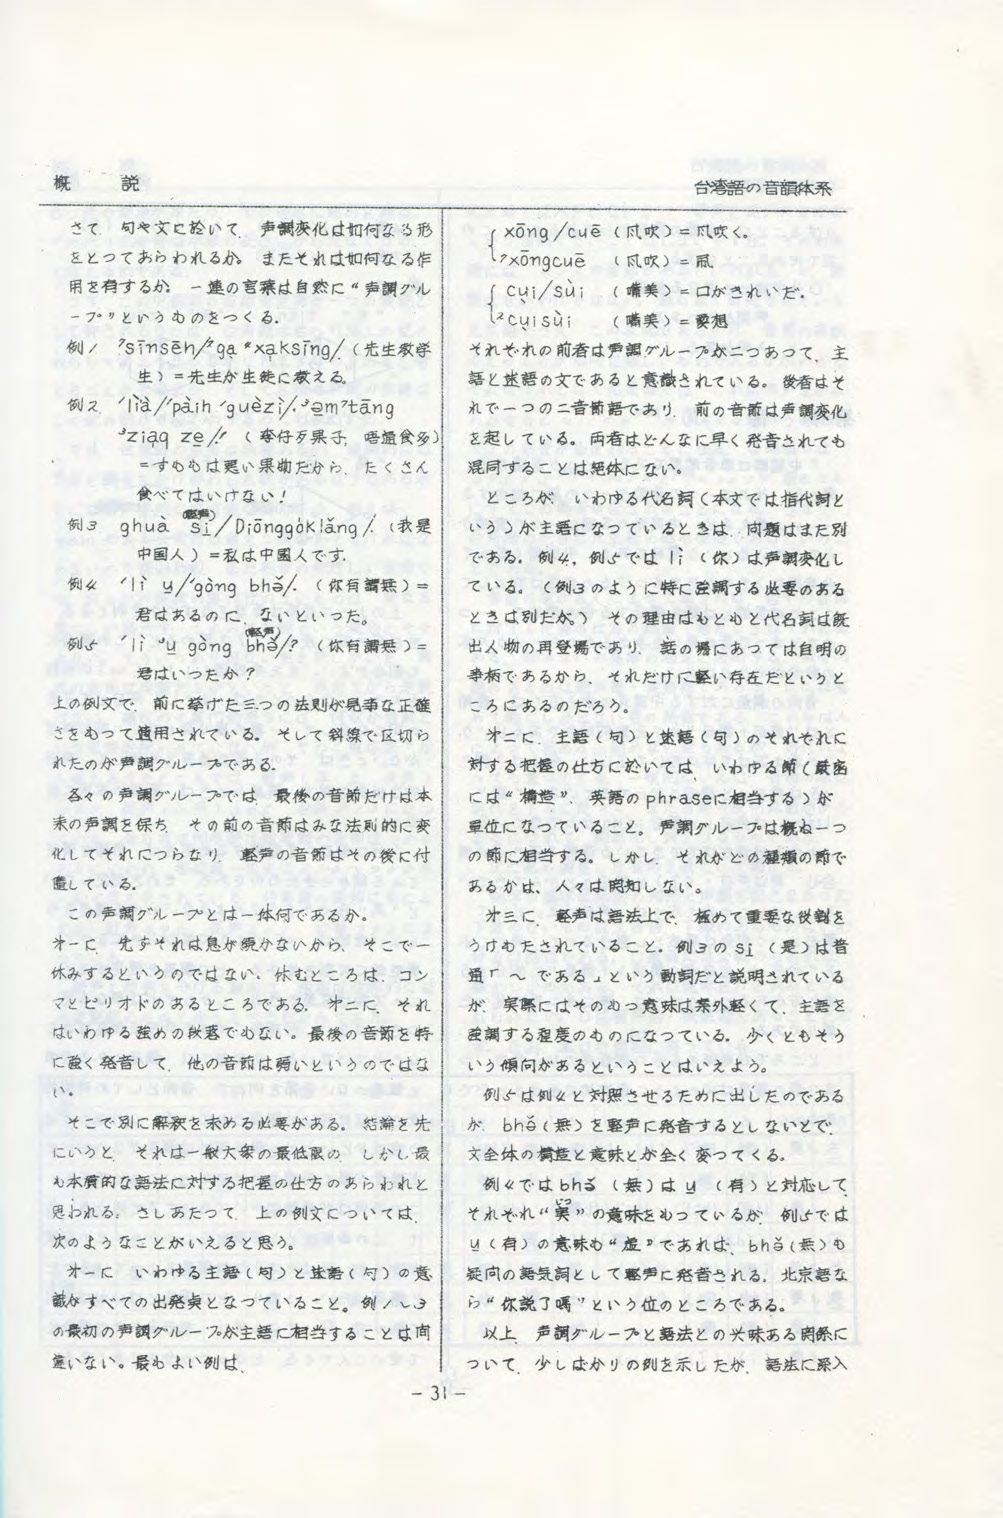 概　　説
台湾語の音韻体系
さて、句や文に於いて、声調変化は如何なる形
をとつてあらわれるか。またそれは如何なる作
用を有するか。一連の言葉は自然に“声調グル
ープ”というものをつくる。
例1 ⁷sīnsēh/²gạ *xạksīng/.（先生教学
生）=先生が生徒に教える。
例2 ′lìà/′pàih ′guèzì/.³e̱m⁷tāng
³ziạq ze̱/!（李仔歹果子，唔通食多）
=すももは悪い果物だから、たくさん
食べてはいけない！
例3 ghuà si̱(軽声)/Diōnggòklǎng/.（我是
中国人）=私は中國人です。
例4 ′lì u̱/′gòng bhǒ/.（你有講無）=
君はあるのに、ないといった。
例5 ′lì ³u̱ gòng bhǒ(軽声)/?（你有講無）=
君はいつたか？
上の例文で、前に挙げた三つの法則が見事な正確
さをもつて適用されている。そして斜線で区切ら
れたのが声調グループである。
各々の声調グループでは、最後の音節だけは本
来の声調を保ち、その前の音節はみな法則的に変
化してそれにつらなり、軽声の音節はその後に付
置している。
この声調グループとは一体何であるか。
オ一に、先ずそれは息が続かないから、そこで一
休みするというのではない。休むところは、コン
マとピリオドのあるところである。オ二に、それ
はいわゆる強めの段落でもない。最後の音節を特
に強く発音して、他の音節は弱いというのではな
い。
そこで別に解釈を求める必要がある。結論を先
にいうと、それは一般大衆の最低限の、しかし最
も本質的な語法に対する把握の仕方のあらわれと
思われる。さしあたつて、上の例文については、
次のようなことがいえると思う。
オ一に　いわゆる主語（句）と述語（句）の意
識がすべての出発点となつていること。例1〜3
の最初の声調グループが主語に相当することは間
違いない。最もよい例は、
xōng/cuē（風吹）=風吹く。
⁷xōngcuē（風吹）=凧
cụi/sùi（嘴美）=口がきれいだ。
²cụisùi（嘴美）=愛想
それぞれの前者は声調グループが二つあつて、主
語と述語の文であると意識されている。後者はそ
れで一つの二音節語であり、前の音節は声調変化
を起している。両者はどんなに早く発音されても
混同することは絶体にない。
ところが、いわゆる代名詞（本文では指代詞と
いう）が主語になつているときは、問題はまた別
である。例4，例5では lì（你）は声調変化し
ている。（例3のように特に強調する必要のある
ときは別だが。）その理由はもともと代名詞は既
出人物の再登場であり、話の場にあつては自明の
事柄であるから、それだけに軽い存在だというと
ころにあるのだろう。
オ二に、主語（句）と述語（句）のそれぞれに
対する把握の仕方に於いては、いわゆる節（厳密
には“構造”、英語のphraseに相当する）が
単位になつていること。声調グループは概ね一つ
の節に相当する。しかし、それがどの種類の節で
あるかは、人々は関知しない。
オ三に、軽声は語法上で、極めて重要な役割を
うけもたされていること。例3の si̱（是）は普
通「〜である」という動詞だと説明されている
が、実際にはそのもつ意味は案外軽くて、主語を
強調する程度のものになつている。少くともそう
いう傾向があるということはいえよう。
例5は例4と対照させるために出したのである
が、bhǒ（無）を軽声に発音するとしないとで、
文全体の構造と意味とが全く変つてくる。
例4ではbhǒ（無）は u̱（有）と対応して、
それぞれ“実(じつ)”の意味をもつているが、例5では
u̱（有）の意味も“虚”であれば、bhǒ（無）も
疑問の語気詞として軽声に発音される。北京語な
ら“你説了嗎”という位のところである。
以上、声調グループと語法との興味ある関係に
ついて、少しばかりの例を示したが、語法に深入
- 31 -